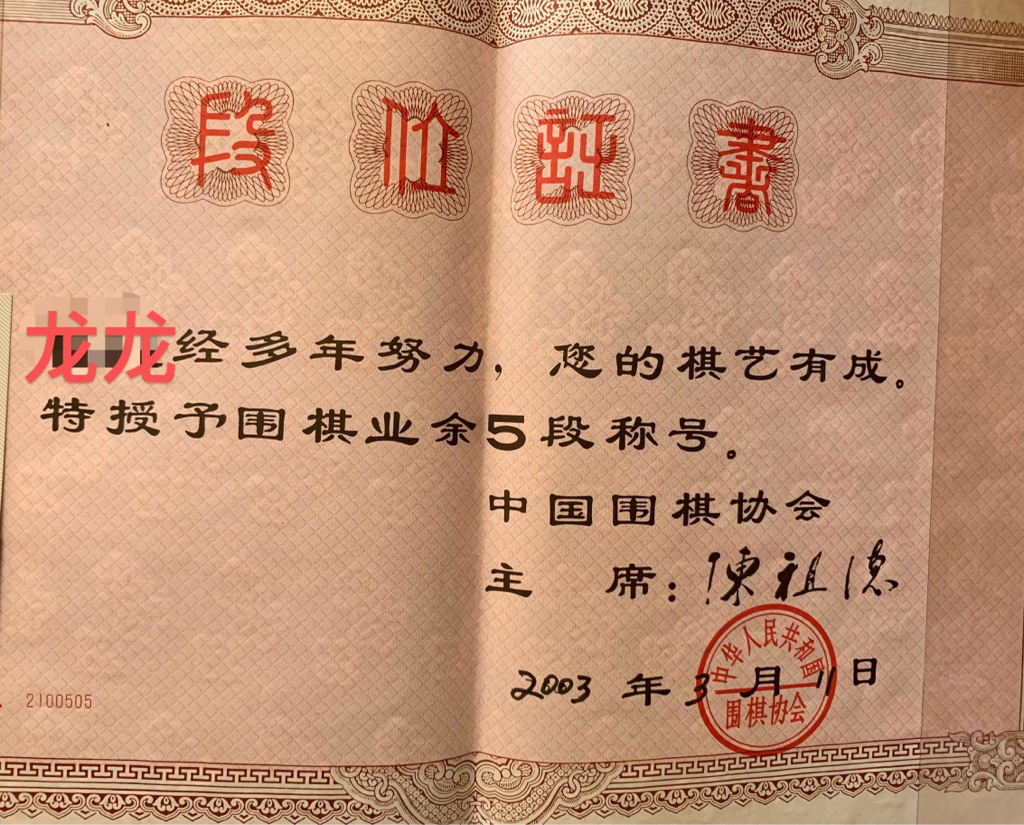 段位证书
龙龙经多年努力，您的棋艺有成。
特授予围棋业余5段称号。
中国围棋协会
主 席：陳祖德
2003年3月11日
中华人民共和国
围棋协会
2100505